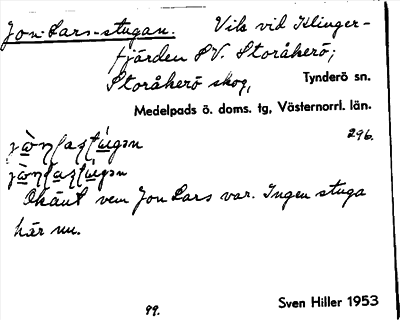 Jon-Lars-stugan. Vik vid Klinger-
fjärden SV. Storåkerö;
Storåkerö skog, Tynderö sn.
Medelpads ö. doms. tg, Västernorrl. län.
296.
Okänt vem Jon Lars var. Ingen stuga
här nu.
99. Sven Hiller 1953